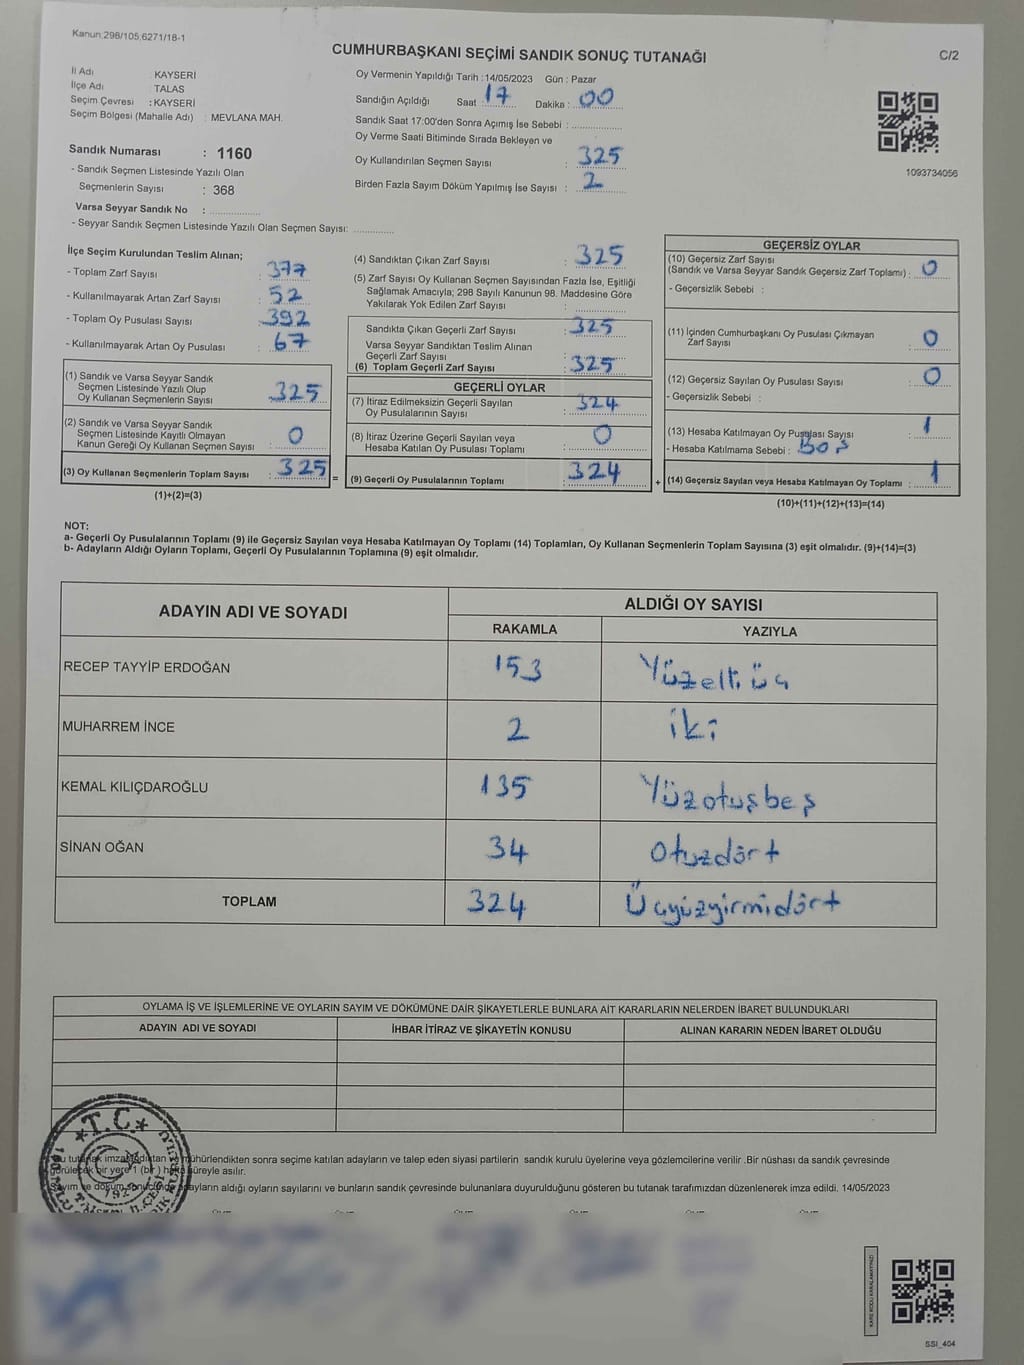 Kanun,298/105,6271/18-1
CUMHURBAŞKANI SEÇİMİ SANDIK SONUÇ TUTANAĞI
C/2
İl Adı KAYSERİ
İlçe Adı TALAS
Seçim Çevresi : KAYSERİ
Seçim Bölgesi (Mahalle Adı) : MEVLANA MAH.
Oy Vermenin Yapıldığı Tarih :14/05/2023 Gün : Pazar
Sandığın Açıldığı Saat : 17 Dakika : 00
Sandık Saat 17:00'den Sonra Açımış İse Sebebi :
Oy Verme Saati Bitiminde Sırada Bekleyen ve
Oy Kullandırılan Seçmen Sayısı : 325
Birden Fazla Sayım Döküm Yapılmış İse Sayısı : 2
1093734056
Sandık Numarası : 1160
- Sandık Seçmen Listesinde Yazılı Olan
Seçmenlerin Sayısı : 368
Varsa Seyyar Sandık No :
- Seyyar Sandık Seçmen Listesinde Yazılı Olan Seçmen Sayısı:
İlçe Seçim Kurulundan Teslim Alınan;
- Toplam Zarf Sayısı : 377
- Kullanılmayarak Artan Zarf Sayısı : 52
- Toplam Oy Pusulası Sayısı : 392
- Kullanılmayarak Artan Oy Pusulası : 67
(1) Sandık ve Varsa Seyyar Sandık
Seçmen Listesinde Yazılı Olup
Oy Kullanan Seçmenlerin Sayısı : 325
(2) Sandık ve Varsa Seyyar Sandık
Seçmen Listesinde Kayıtlı Olmayan
Kanun Gereği Oy Kullanan Seçmen Sayısı : 0
(3) Oy Kullanan Seçmenlerin Toplam Sayısı : 325
(1)+(2)=(3)
=
(4) Sandıktan Çıkan Zarf Sayısı : 325
(5) Zarf Sayısı Oy Kullanan Seçmen Sayısından Fazla İse, Eşitliği
Sağlamak Amacıyla; 298 Sayılı Kanunun 98. Maddesine Göre
Yakılarak Yok Edilen Zarf Sayısı :
Sandıkta Çıkan Geçerli Zarf Sayısı : 325
Varsa Seyyar Sandıktan Teslim Alınan
Geçerli Zarf Sayısı
(6) Toplam Geçerli Zarf Sayısı : 325
GEÇERLİ OYLAR
(7) İtiraz Edilmeksizin Geçerli Sayılan
Oy Pusulalarının Sayısı : 324
(8) İtiraz Üzerine Geçerli Sayılan veya
Hesaba Katılan Oy Pusulası Toplamı : 0
(9) Geçerli Oy Pusulalarının Toplamı : 324
+
GEÇERSİZ OYLAR
(10) Geçersiz Zarf Sayısı
(Sandık ve Varsa Seyyar Sandık Geçersiz Zarf Toplamı) : 0
- Geçersizlik Sebebi :
(11) İçinden Cumhurbaşkanı Oy Pusulası Çıkmayan
Zarf Sayısı : 0
(12) Geçersiz Sayılan Oy Pusulası Sayısı : 0
- Geçersizlik Sebebi :
(13) Hesaba Katılmayan Oy Pusulası Sayısı : 1
- Hesaba Katılmama Sebebi : Boş
(14) Geçersiz Sayılan veya Hesaba Katılmayan Oy Toplamı : 1
(10)+(11)+(12)+(13)=(14)
NOT:
a- Geçerli Oy Pusulalarının Toplamı (9) ile Geçersiz Sayılan veya Hesaba Katılmayan Oy Toplamı (14) Toplamları, Oy Kullanan Seçmenlerin Toplam Sayısına (3) eşit olmalıdır. (9)+(14)=(3)
b- Adayların Aldığı Oyların Toplamı, Geçerli Oy Pusulalarının Toplamına (9) eşit olmalıdır.
ADAYIN ADI VE SOYADI ALDIĞI OY SAYISI
RAKAMLA YAZIYLA
RECEP TAYYİP ERDOĞAN 153 Yüzelli üç
MUHARREM İNCE 2 iki
KEMAL KILIÇDAROĞLU 135 Yüzotuşbeş
SİNAN OĞAN 34 Otuzdört
TOPLAM 324 Üçyüzyirmidört
OYLAMA İŞ VE İŞLEMLERİNE VE OYLARIN SAYIM VE DÖKÜMÜNE DAİR ŞİKAYETLERLE BUNLARA AİT KARARLARIN NELERDEN İBARET BULUNDUKLARI
ADAYIN ADI VE SOYADI İHBAR İTİRAZ VE ŞİKAYETİN KONUSU ALINAN KARARIN NEDEN İBARET OLDUĞU
★T.C★
Bu tutanak imzalandıktan ve mühürlendikten sonra seçime katılan adayların ve talep eden siyasi partilerin sandık kurulu üyelerine veya gözlemcilerine verilir .Bir nüshası da sandık çevresinde
görülecek bir yere 1 (bir ) hafta süreyle asılır.
Sayım ve döküm sonucunda adayların aldığı oyların sayılarını ve bunların sandık çevresinde bulunanlara duyurulduğunu gösteren bu tutanak tarafımızdan düzenlenerek imza edildi. 14/05/2023
KARE KODU KARALAMAYINIZ!
SSI_404